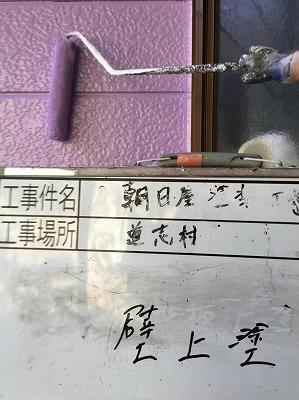 工事件名 朝日屋塗装工事
工事場所 道志村
壁上塗